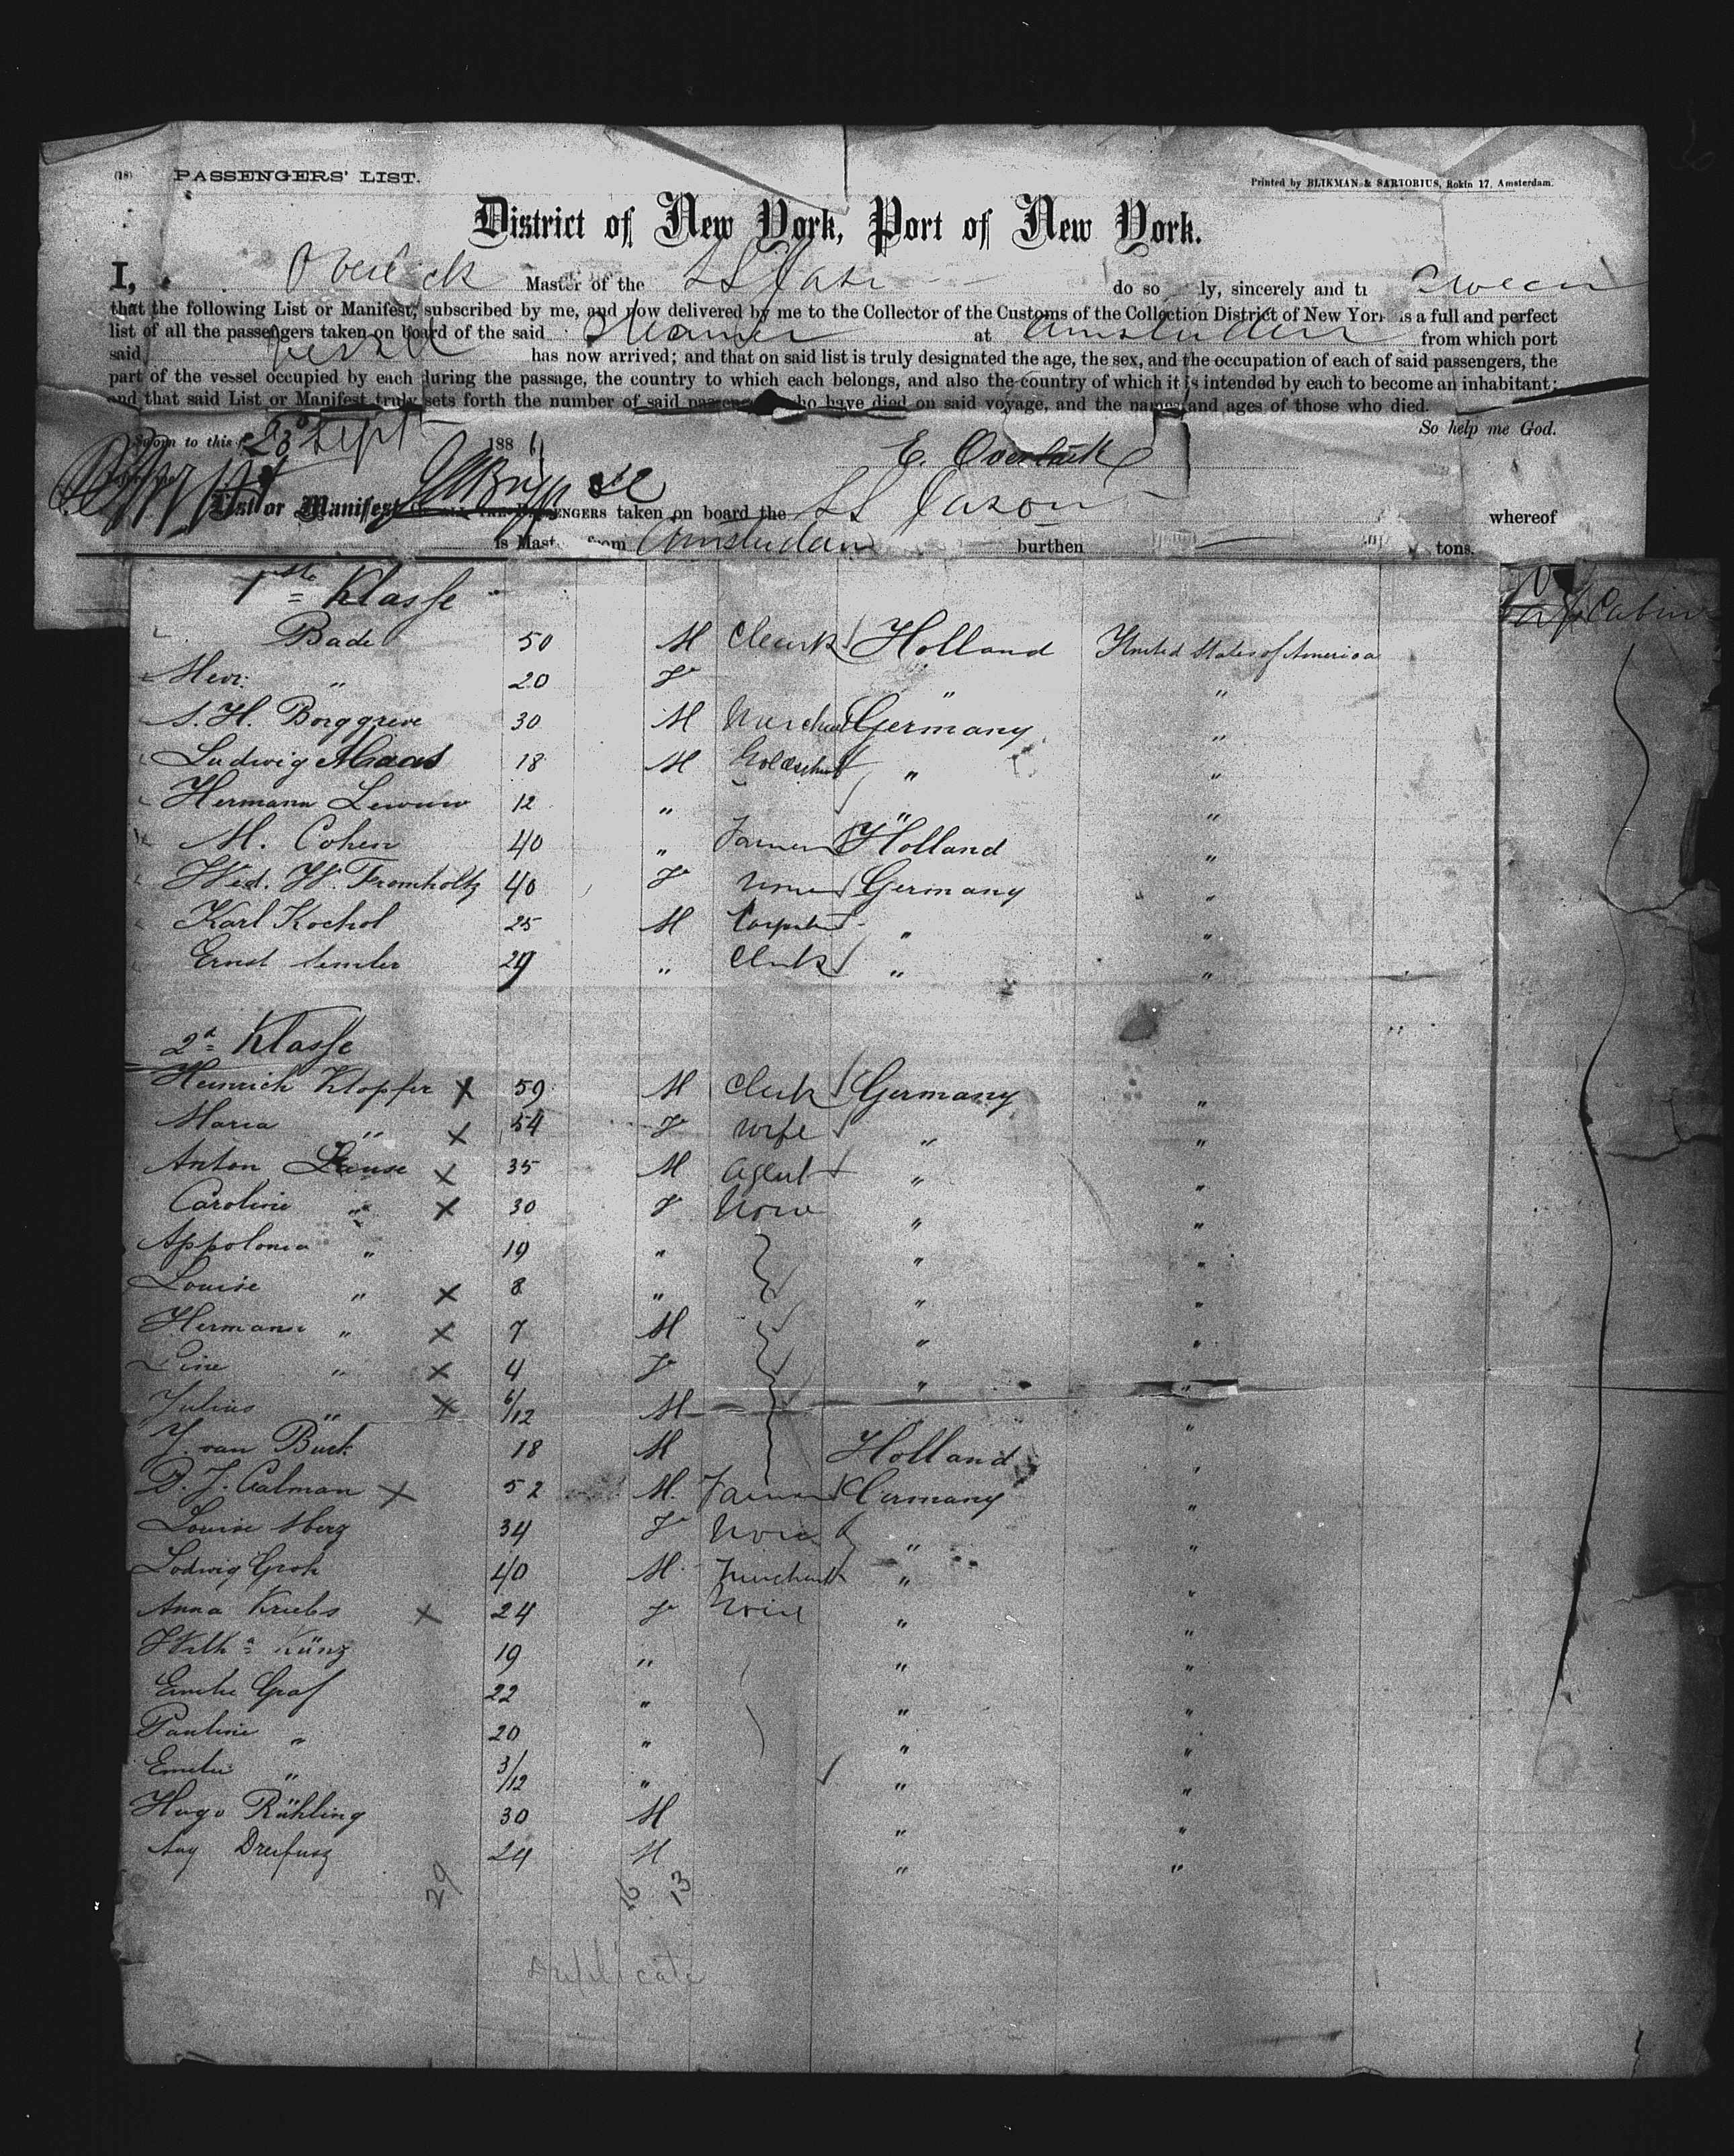 (18) PASSENGERS' LIST. Printed by BLIKMAN & SARTORIUS, Rokin 17, Amsterdam.
District of New York, Port of New York.
I, Master of the SS do so ly, sincerely and
that the following List or Manifest, subscribed by me, and now delivered by me to the Collector of the Customs of the Collection District of New York is a full and perfect
list of all the passengers taken on board of the said Steamer at Amsterdam from which port
said vessel has now arrived; and that on said list is truly designated the age, the sex, and the occupation of each of said passengers, the
part of the vessel occupied by each during the passage, the country to which each belongs, and also the country of which it is intended by each to become an inhabitant;
and that said List or Manifest truly sets forth the number of said who have died on said voyage, and the names and ages of those who died.
So help me God.
Sworn to this 23 Sept 188 E. Overlack
List or Manifest taken on board the SS Jason whereof
is Mast from Amsterdam burthen tons.
1ste Klasse Cabin
Bade 50 M Holland United States of America
Mevr. " 20 F " "
Borggreve 30 M Germany "
Ludwig Maas 18 M " "
Hermann 12 " " "
M. Cohen 40 " Farmer Holland "
Wed. W. Fromholtz 40 F None Germany "
Karl Kochol 25 M " "
Ernst 29 " Clerk " "
2d Klasse
Heinrich Klopfer X 59 M Clerk Germany "
Maria " X 54 F Wife " "
Anton X 35 M Agent " "
Caroline " X 30 F None " "
Appolonia " 19 " " "
Louise " X 8 " " "
Hermann " X 7 M " "
Line " X 4 F " "
Julius " X 6/12 M "
18 M Holland "
Calman X 52 M. Farmer Germany "
Louise 34 F None " "
Lodwig Groh 40 M. Merchant " "
Anna Kriebs X 24 F None " "
Wilha Künz 19 " " "
Emilie Graf 22 " " "
Pauline " 20 " " "
Emilie " 3/12 " " "
Hugo Rühling 30 M " "
Aug Dreifusz 24 M " "
29 16 13
Duplicate